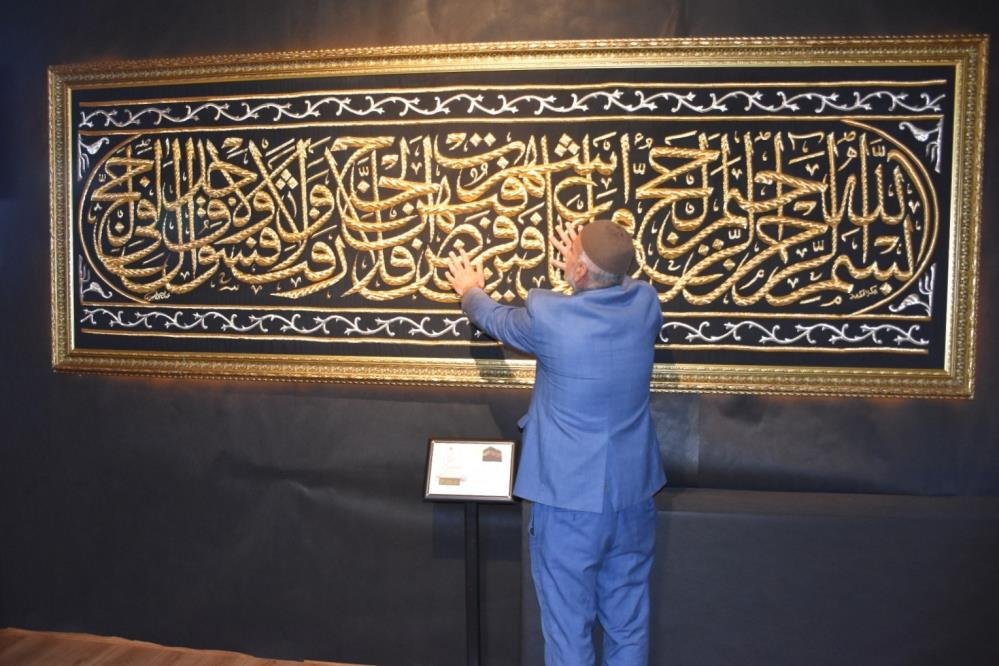 بسم الله الرحمن الرحيم الحج أشهر فمن فرض فيهن الحج فلا رفث ولا فسوق ولا جدال في الحج